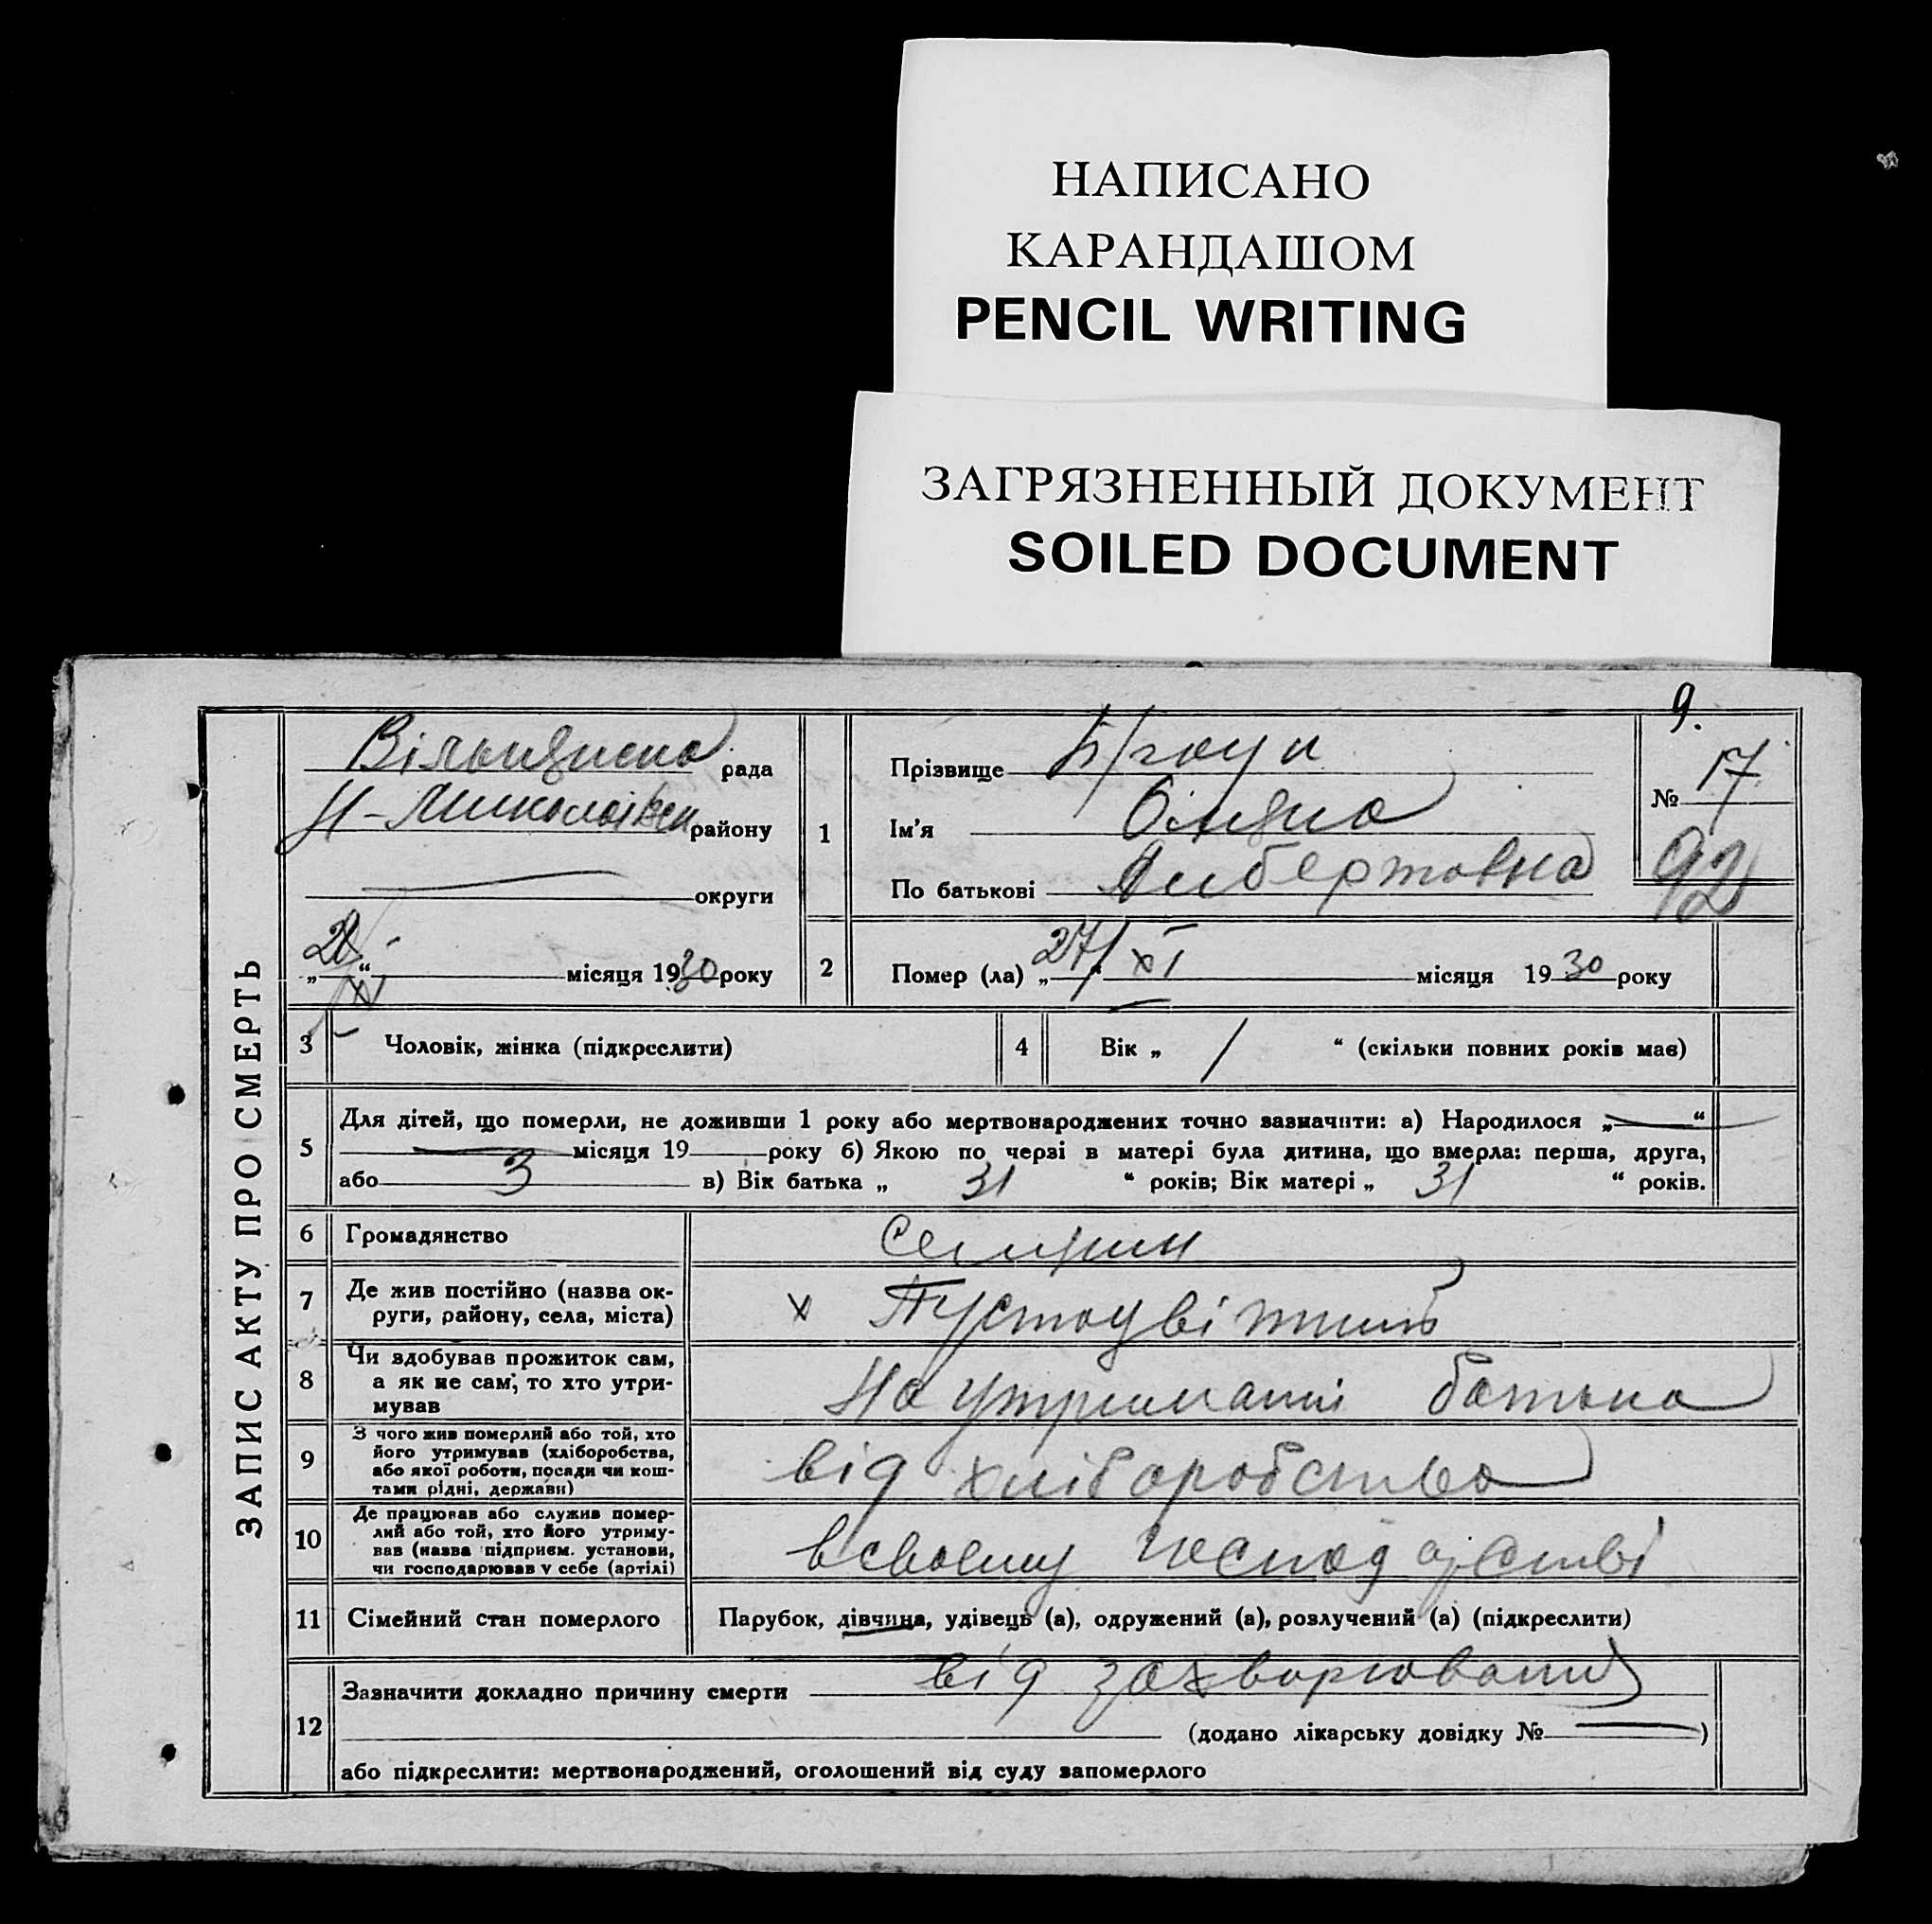 НАПИСАНО
КАРАНДАШОМ
PENCIL WRITING
ЗАГРЯЗНЕННЫЙ ДОКУМЕНТ
SOILED DOCUMENT
9.
ЗАПИС АКТУ ПРО СМЕРТЬ
рада
Н-Миколаївськ району
округи
місяця 1930 року
1
Прізвище
Ім'я
По батькові
№ 17
92
2
Помер (ла) „27/“ XI місяця 1930 року
3 Чоловік, жінка (підкреслити)
4 Вік „ 1 “ (скільки повних років має)
5
Для дітей, що померли, не доживши 1 року або мертвонароджених точно зазначити: а) Народилося „—“
— місяця 19 року б) Якою по черзі в матері була дитина, що вмерла: перша, друга,
або 3 в) Вік батька „ 31 “ років; Вік матері „ 31 “ років.
6 Громадянство селянин
7 Де жив постійно (назва ок-
руги, району, села, міста)
х
8 Чи здобував прожиток сам,
а як не сам, то хто утри-
мував
На утриманні батька
9 З чого жив померлий або той, хто
його утримував (хліборобства,
або якої роботи, посади чи кош-
тами рідні, держави)
від хліборобства
10 Де працював або служив помер-
лий або той, хто його утриму-
вав (назва підприєм. установи,
чи господарював у себе (артілі)
в своему господарстві
11 Сімейний стан померлого Парубок, дівчина, удівець (а), одружений (а), розлучений (а) (підкреслити)
12
Зазначити докладно причину смерти від захворювання
(додано лікарську довідку № —)
або підкреслити: мертвонароджений, оголошений від суду запомерлого